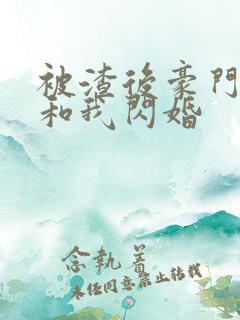 被渣後豪門
和我閃婚
念執着
未经同意禁止转载